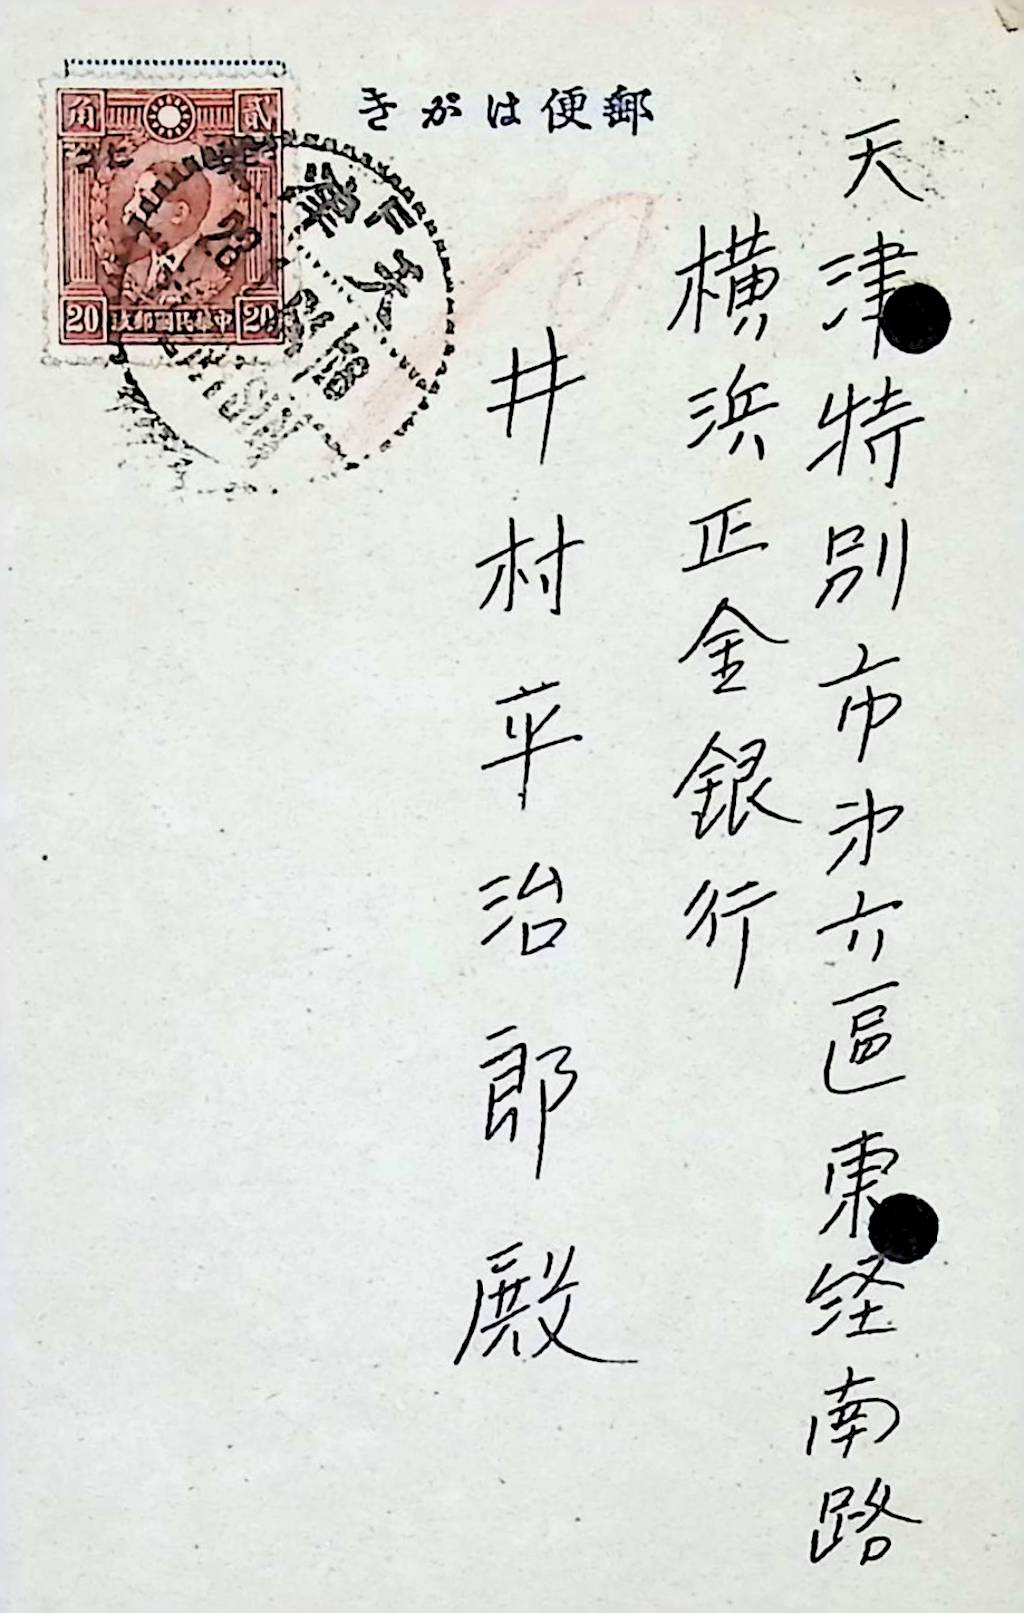 郵便はがき
天津特別市㐧六區東経南路
横浜正金銀行
井村平治郎殿
角 貳
華北
20 中華民國郵政 20
天津